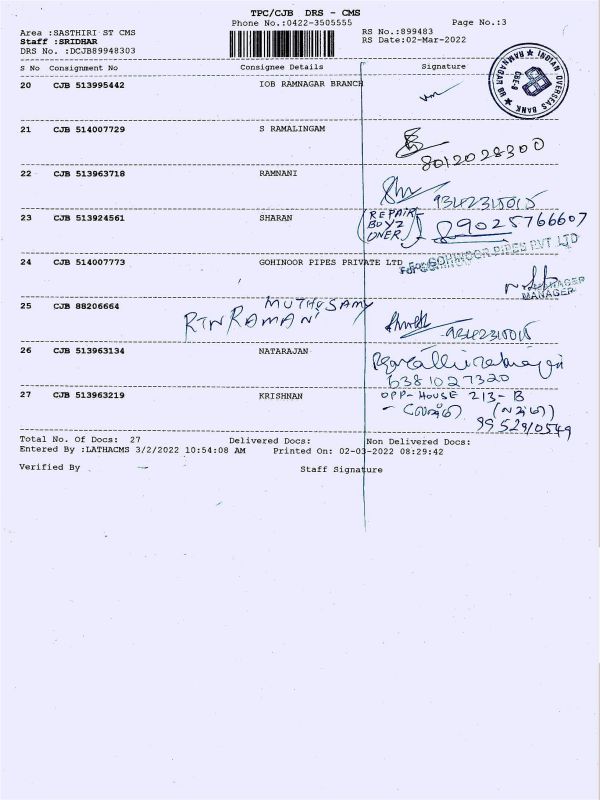 TPC/CJB DRS - CMS
Phone No.:0422-3505555
Page No.:3
Area :SASTHIRI ST CMS
RS No.:899483
Staff :SRIDHAR
RS Date:02-Mar-2022
DRS No. :DCJB89948303
S No Consignment No Consignee Details Signature
20 CJB 513995442 IOB RAMNAGAR BRANCH
21 CJB 514007729 S RAMALINGAM
8012028300
22 CJB 513963718 RAMNANI
9342315015
23 CJB 513924561 SHARAN
(REPAIR BOYZ ONER) 89025766607
24 CJB 514007773 GOHINOOR PIPES PRIVATE LTD
For GOHINOOR PIPES PVT LTD
MANAGER
25 CJB 88206664 MUTHUSAMY
RTN RAMANI
9342315015
26 CJB 513963134 NATARAJAN
6381027320
27 CJB 513963219 KRISHNAN
OPP-HOUSE 213-B
9952910549
Total No. Of Docs: 27 Delivered Docs: Non Delivered Docs:
Entered By :LATHACMS 3/2/2022 10:54:08 AM Printed On: 02-03-2022 08:29:42
Verified By Staff Signature